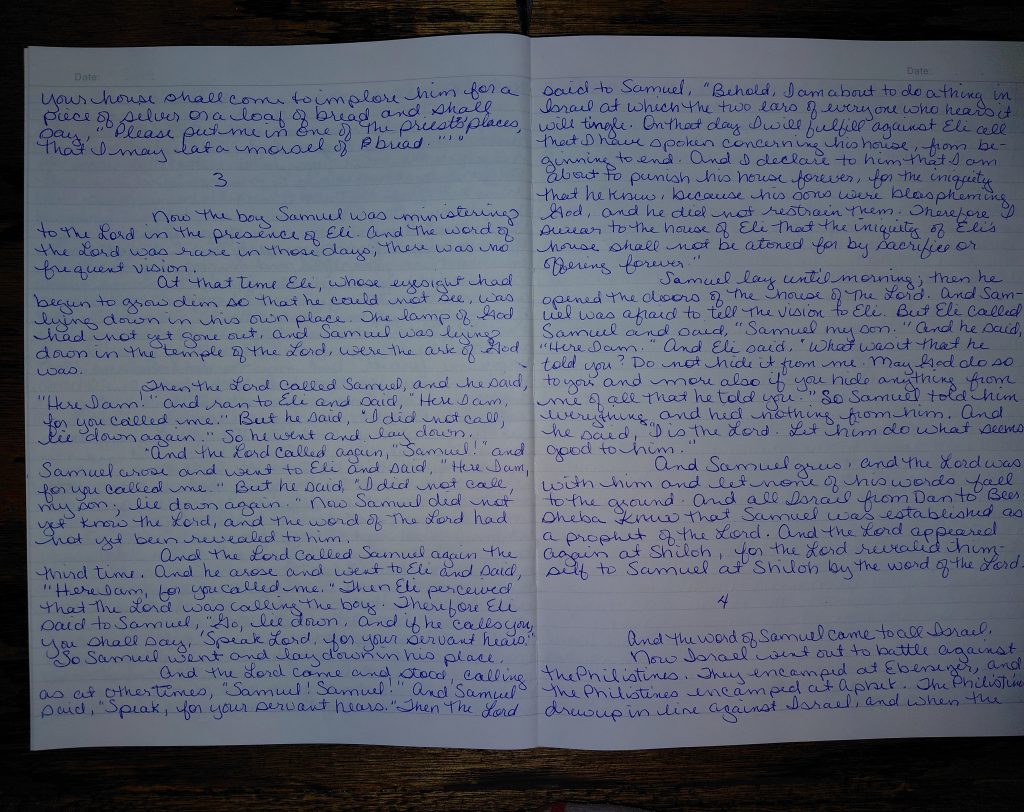 Date:
your house shall come to implore him for a
piece of silver or a loaf of bread and shall
say, "Please put me in one of the priests' places,
that I may eat a morsel of bread."'"
3
Now the boy Samuel was ministering
to the Lord in the presence of Eli. And the word of
the Lord was rare in those days, there was no
frequent vision.
At that time Eli, whose eyesight had
begun to grow dim so that he could not see, was
lying down in his own place. The lamp of God
had not yet gone out, and Samuel was lying
down in the temple of the Lord, were the ark of God
was.
Then the Lord called Samuel, and he said,
"Here I am!" and ran to Eli and said, "Here I am,
for you called me." But he said, "I did not call,
lie down again." So he went and lay down.
"And the Lord called again, "Samuel!" and
Samuel arose and went to Eli and said, "Here I am,
for you called me." But he said, "I did not call,
my son, lie down again." Now Samuel did not
yet know the Lord, and the word of the Lord had
not yet been revealed to him.
And the Lord called Samuel again the
third time. And he arose and went to Eli and said,
"Here I am, for you called me." Then Eli perceived
that the Lord was calling the boy. Therefore Eli
said to Samuel, "Go, lie down, and if he calls you,
you shall say, 'Speak Lord, for your servant hears.'"
So Samuel went and lay down in his place.
And the Lord came and stood, calling
as at other times, "Samuel! Samuel!" And Samuel
said, "Speak, for your servant hears." Then the Lord
Date:
said to Samuel, "Behold, I am about to do a thing in
Israel at which the two ears of everyone who hears it
will tingle. On that day I will fulfill against Eli all
that I have spoken concerning his house, from be-
ginning to end. And I declare to him that I am
about to punish his house forever, for the iniquity
that he knew, because his sons were blaspheming
God, and he did not restrain them. Therefore I
swear to the house of Eli that the iniquity of Eli's
house shall not be atoned for by sacrifice or
offering forever."
Samuel lay until morning; then he
opened the doors of the house of the Lord. And Sam-
uel was afraid to tell the vision to Eli. But Eli called
Samuel and said, "Samuel my son." And he said,
"Here I am." And Eli said, "What was it that he
told you? Do not hide it from me. May God do so
to you and more also if you hide anything from
me of all that he told you." So Samuel told him
everything and hid nothing from him. And
he said, "I is the Lord. Let him do what seems
good to him."
And Samuel grew, and the Lord was
with him and let none of his words fall
to the ground. And all Israel from Dan to Beer
sheba knew that Samuel was established as
a prophet of the Lord. And the Lord appeared
again at Shiloh, for the Lord revealed him-
self to Samuel at Shiloh by the word of the Lord.
4
And the word of Samuel came to all Israel.
Now Israel went out to battle against
the Philistines. They encamped at Ebenezer, and
the Philistines encamped at Aphek. The Philistine
drew up in line against Israel, and when the